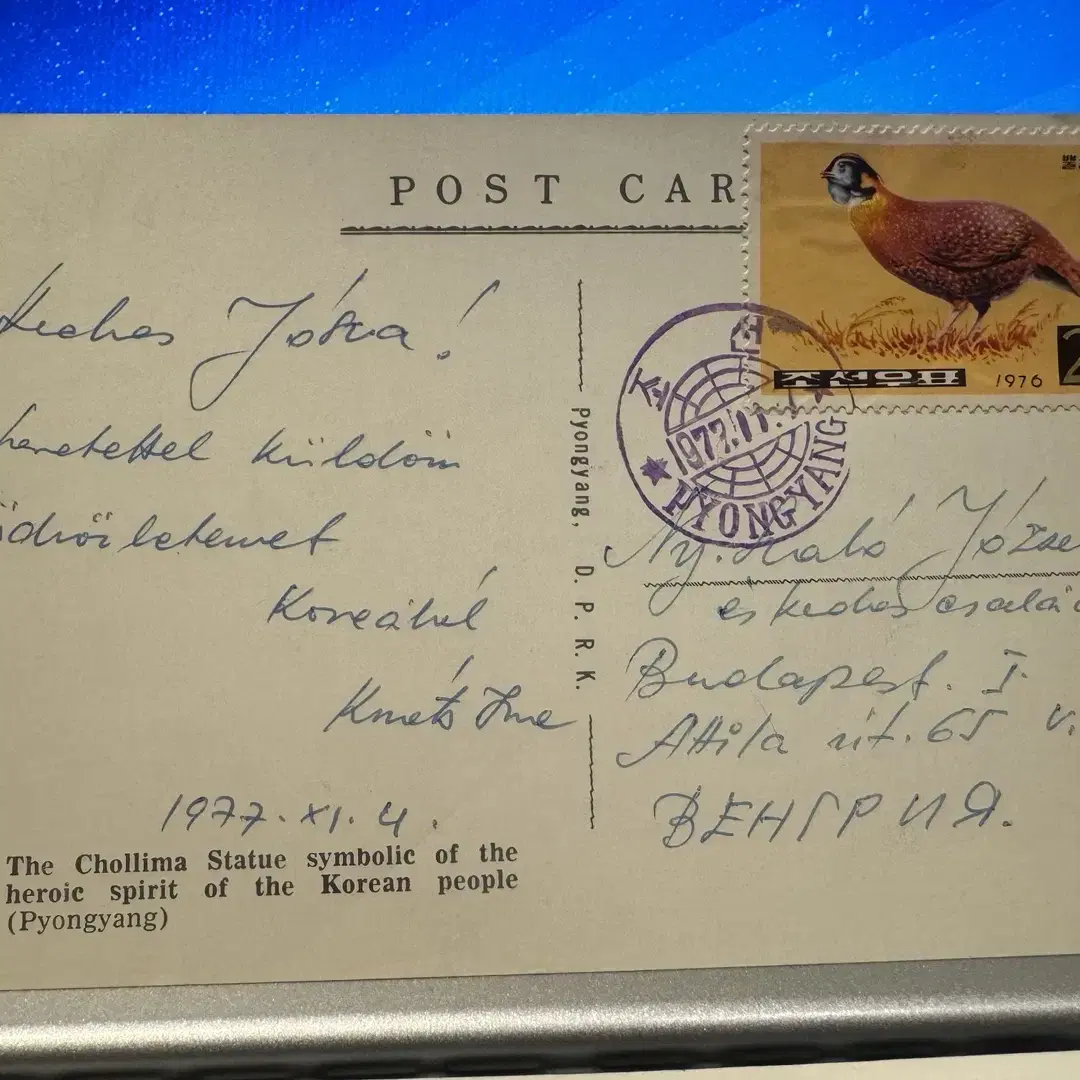 POST CAR
Kedves Józsa!
szeretettel küldöm
üdvözletemet
Koreából
Kmetz Imre
1977. XI. 4.
The Chollima Statue symbolic of the
heroic spirit of the Korean people
(Pyongyang)
Pyongyang, D. P. R. K.
1976
조선
1977.11.
PYONGYANG
Ny. Szabó József
és kedves család
Budapest. I.
Attila út. 65 V.
ВЕНГРИЯ.